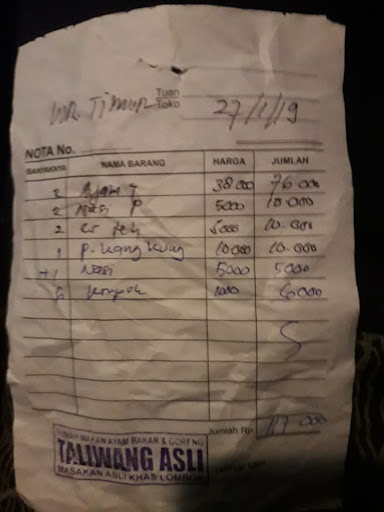 WR. TIMUR
Tuan
Toko
27/1/19
NOTA No.
BANYAKNYA NAMA BARANG HARGA JUMLAH
Ayam T 38.000 76.000
2 Nasi P 5000 10.000
2 es teh 5000 10.000
1 P. Kangkung 10000 10.000
+1 Nasi 5000 5000
6 1000 6000
Jumlah Rp. 117.000
RUMAH MAKAN AYAM BAKAR & GORENG
TALIWANG ASLI
MASAKAN ASLI KHAS LOMBOK